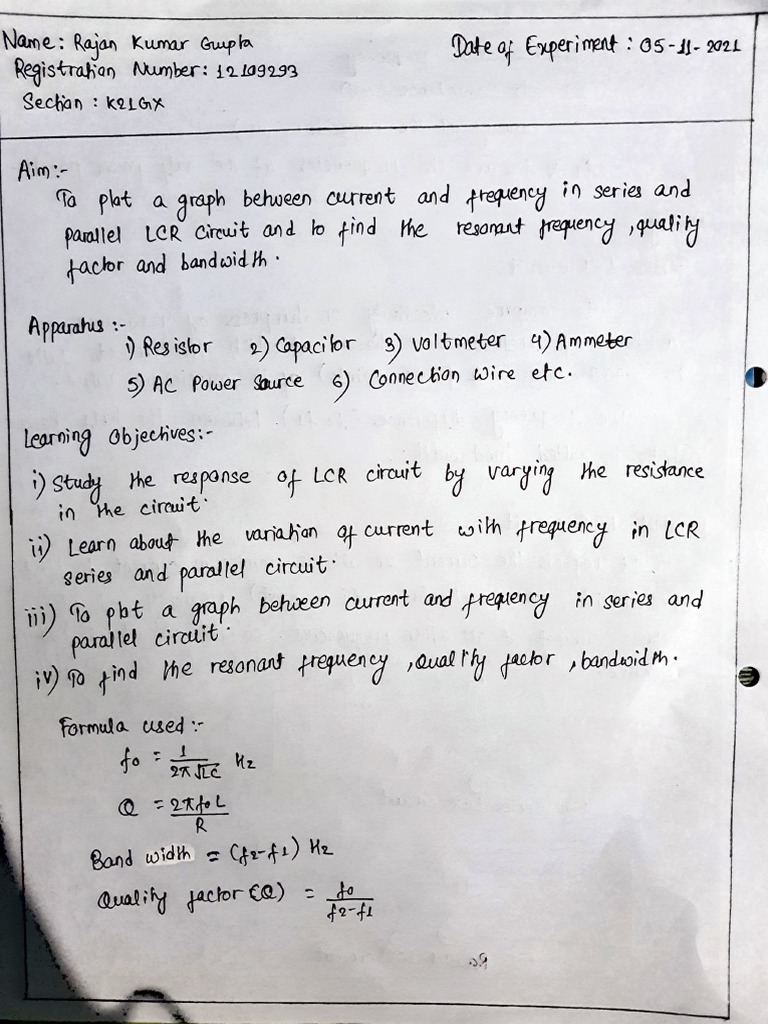 Name: Rajan Kumar Gupta
Date of Experiment : 05-11-2021
Registration Number: 12109293
Section : K21GX
Aim:-
To plot a graph between current and frequency in series and
parallel LCR circuit and to find the resonant frequency, quality
factor and bandwidth.
Apparatus :-
1) Resistor 2) Capacitor 3) Voltmeter 4) Ammeter
5) AC Power Source 6) Connection wire etc.
Learning Objectives:-
i) Study the response of LCR circuit by varying the resistance
in the circuit.
ii) Learn about the variation of current with frequency in LCR
series and parallel circuit.
iii) To plot a graph between current and frequency in series and
parallel circuit.
iv) To find the resonant frequency, Quality factor, bandwidth.
Formula used :-
fo = 1/2π√LC Hz
Q = 2πfoL/R
Band width = (f2-f1) Hz
Quality factor (Q) = fo/f2-f1